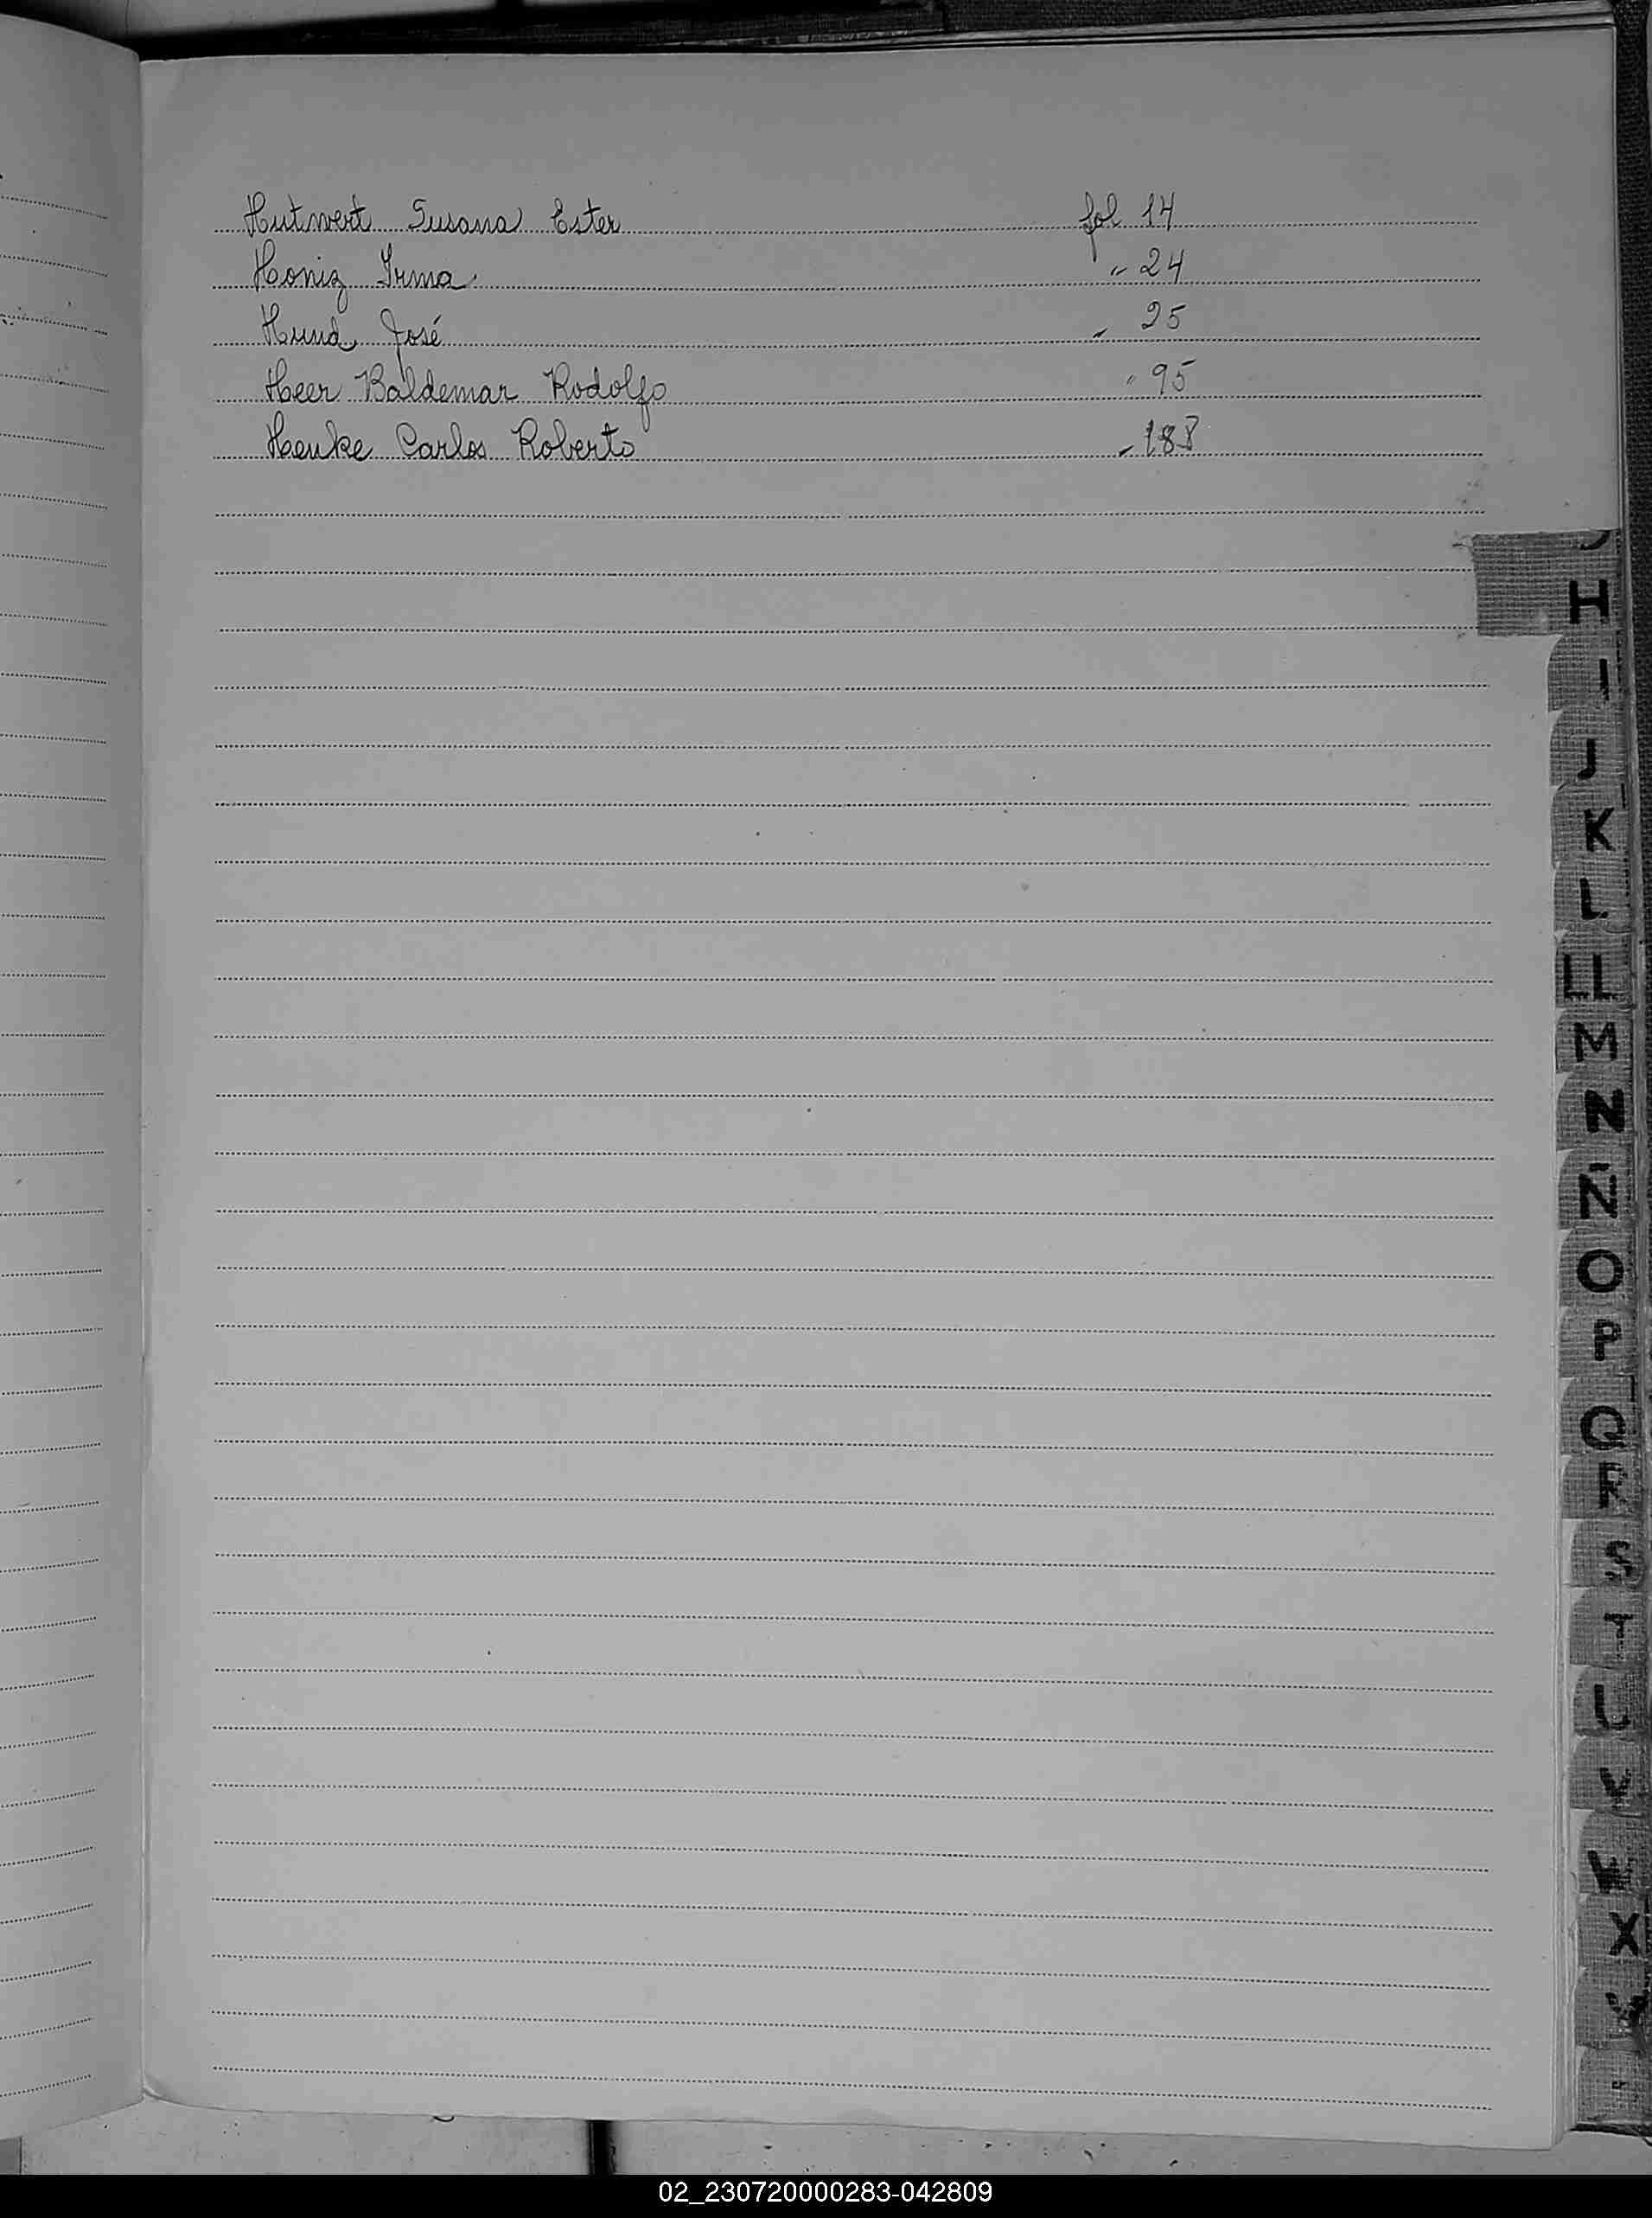 Hutwert Susana Ester fol 14
Honig Irma " 24
Hund José " 25
Heer Baldemar Rodolfo " 95
Henke Carlos Roberto " 188
H
I
J
K
L
LL
M
N
Ñ
O
P
Q
R
S
T
U
V
W
X
02_230720000283-042809